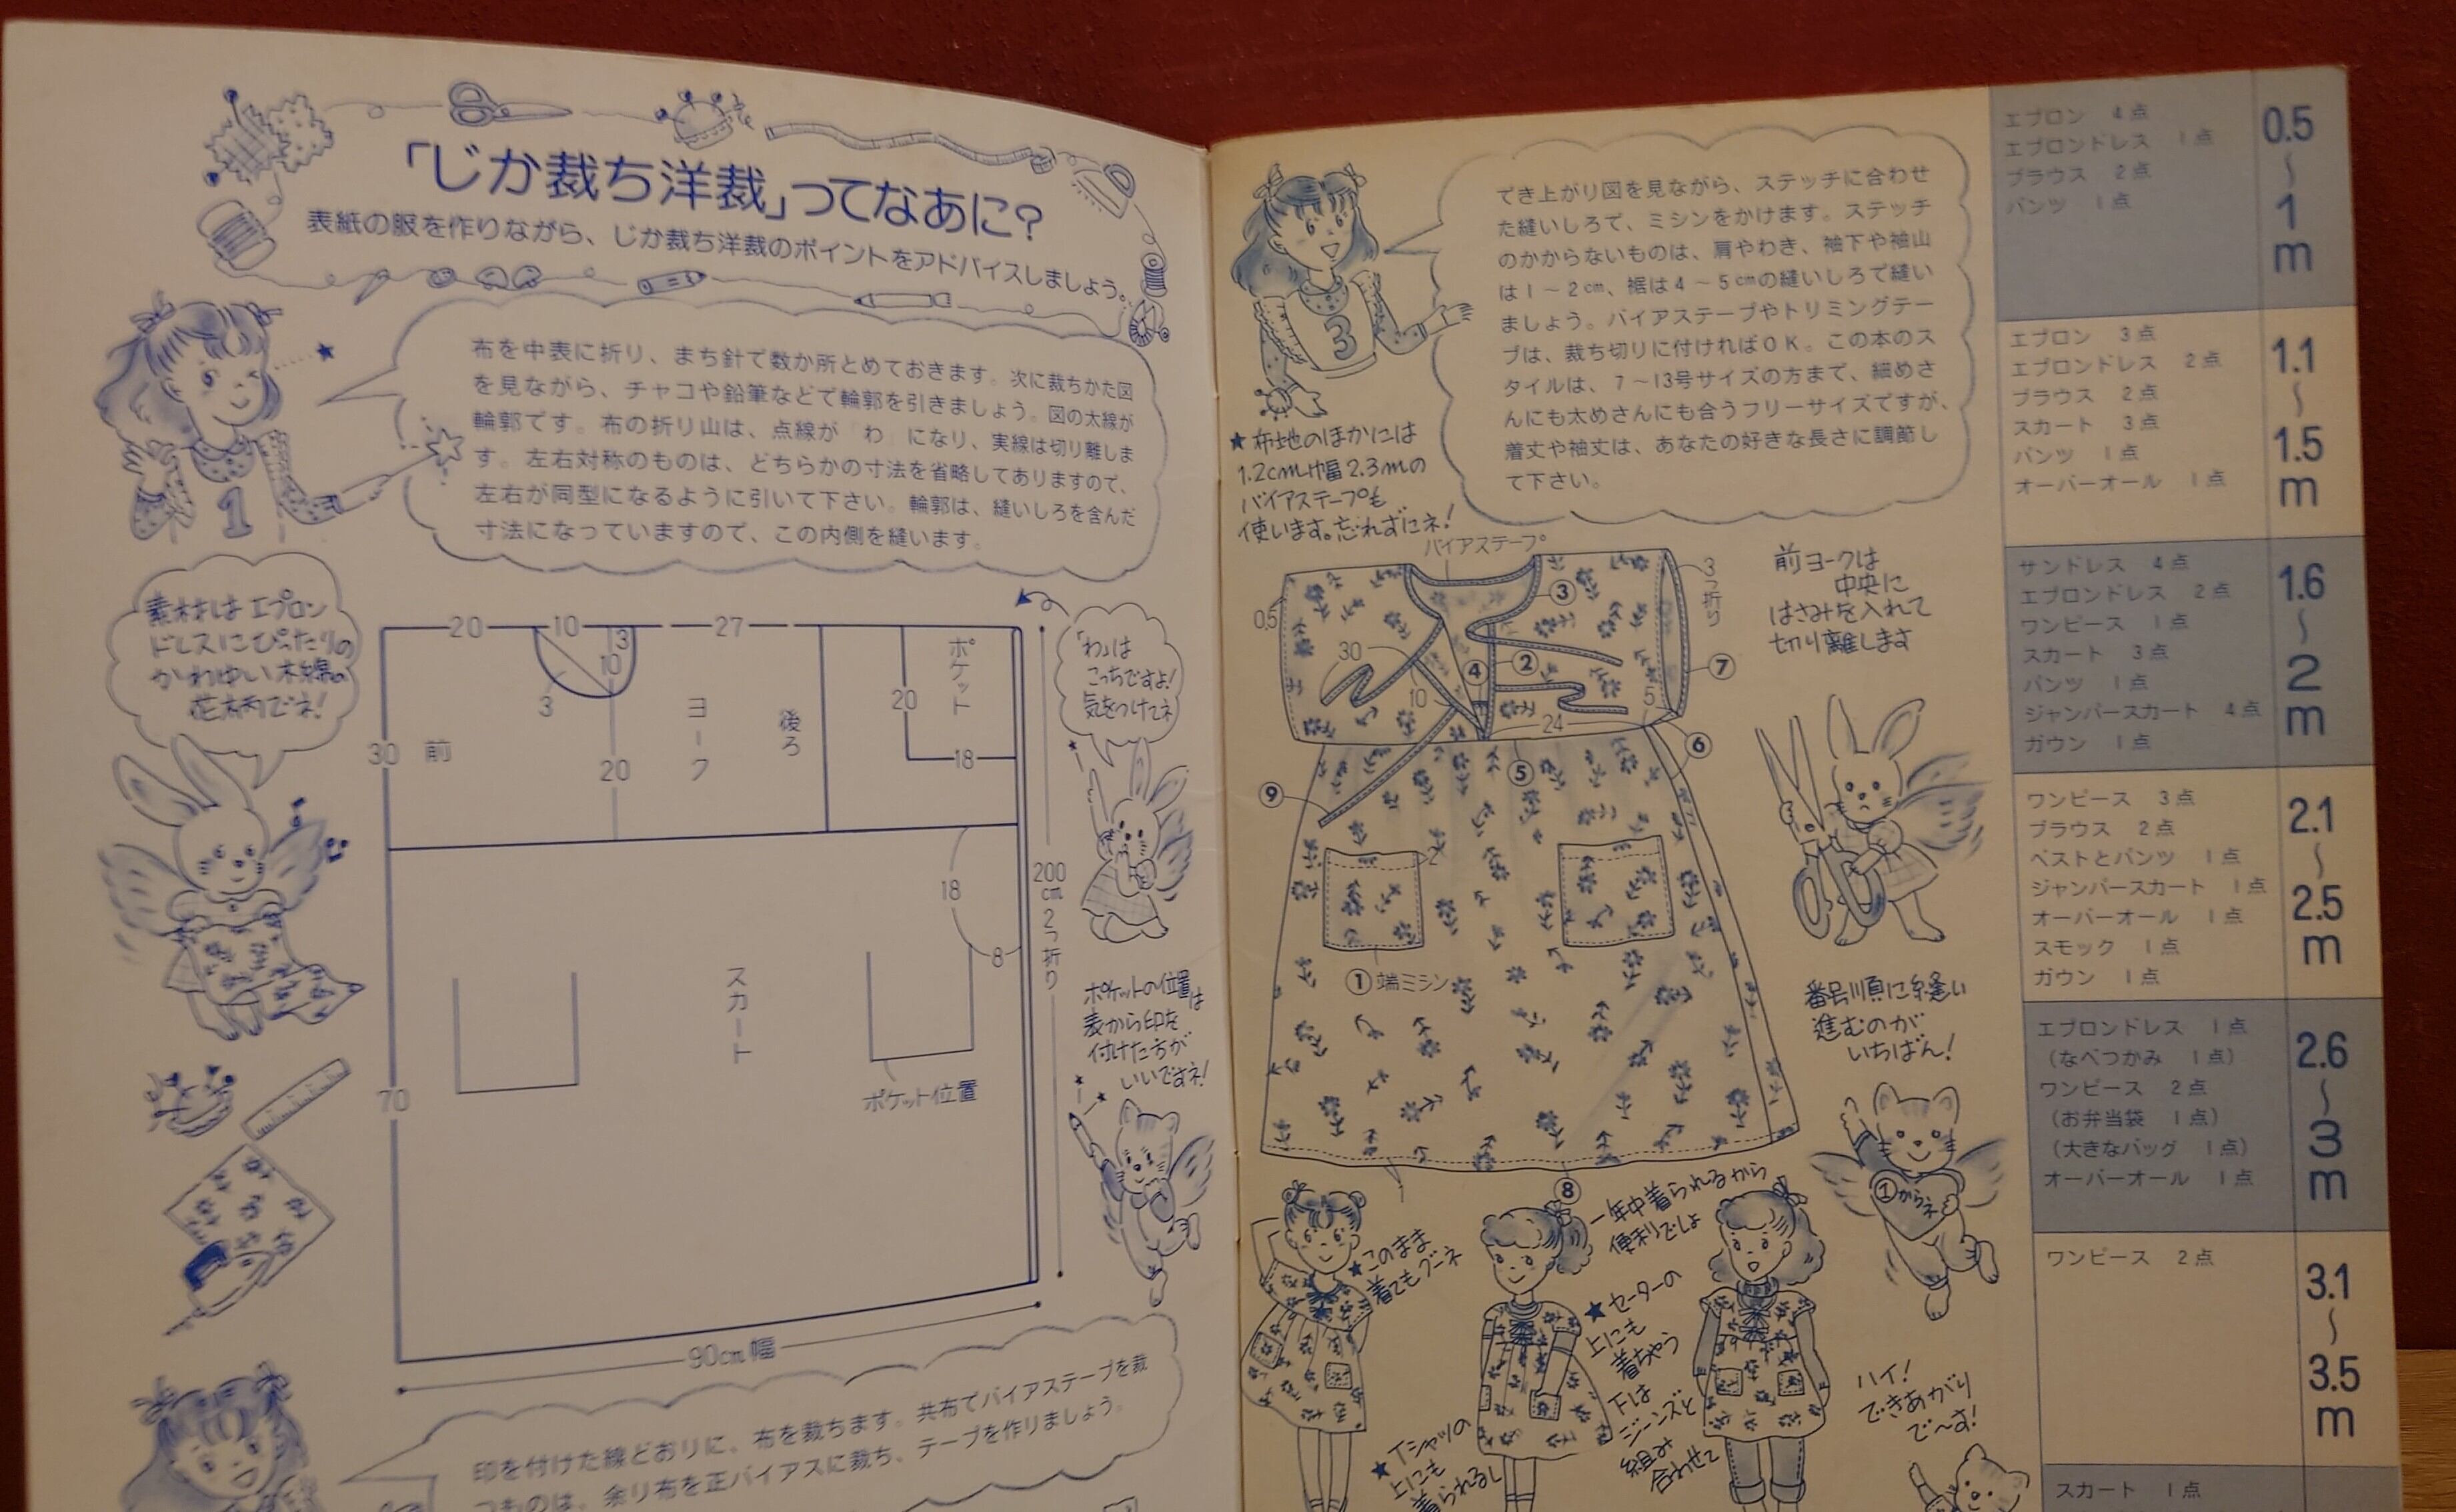 「じか裁ち洋裁」ってなあに?
表紙の服を作りながら、じか裁ち洋裁のポイントをアドバイスしましょう。
布を中表に折り、まち針で数か所とめておきます。次に裁ちかた図
を見ながら、チャコや鉛筆などで輪郭を引きましょう。図の太線が
輪郭です。布の折り山は、点線が「わ」になり、実線は切り離しま
す。左右対称のものは、どちらかの寸法を省略してありますので、
左右が同型になるように引いて下さい。輪郭は、縫いしろを含んだ
寸法になっていますので、この内側を縫います。
1
素材はエプロン
ドレスにぴったりの
かわゆい木綿の
花柄でネ!
20
10
27
3
10
3
20
30
前
ヨーク
後ろ
ポケット
20
18
「わ」は
こっちですよ!
気をつけてネ
18
8
200cm2つ折り
スカート
70
ポケット位置
90cm幅
ポケットの位置は
表から印を
付けた方が
いいですネ!
印を付けた線どおりに、布を裁ちます。共布でバイアステープを裁
つものは、余り布を正バイアスに裁ち、テープを作りましょう。
でき上がり図を見ながら、ステッチに合わせ
た縫いしろで、ミシンをかけます。ステッチ
のかからないものは、肩やわき、袖下や袖山
は1〜2cm、裾は4〜5cmの縫いしろで縫い
ましょう。バイアステープやトリミングテー
プは、裁ち切りに付ければOK。この本のス
タイルは、7〜13号サイズの方まで、細めさ
んにも太めさんにも合うフリーサイズですが、
着丈や袖丈は、あなたの好きな長さに調節し
て下さい。
3
★布地のほかには
1.2cm巾幅2.3mの
バイアステープも
使います。忘れずにネ!
バイアステープ
0.5
3つ折り
③
30
④
②
10
⑦
5
24
⑥
⑤
⑨
2
①端ミシン
⑧
前ヨークは
中央に
はさみを入れて
切り離します
番号順に縫い
進むのが
いちばん!
①からネ
★このまま
着てもグーネ
一年中着られるから
便利でしょ
★セーターの
上にも
着ちゃう
下は
ジーンズと
組み
合わせて
★Tシャツの
上にも
着られるし
ハイ!
できあがり
で〜す!
エプロン 4点
エプロンドレス 1点
ブラウス 2点
パンツ 1点
0.5〜1m
エプロン 3点
エプロンドレス 2点
ブラウス 2点
スカート 3点
パンツ 1点
オーバーオール 1点
1.1〜1.5m
サンドレス 4点
エプロンドレス 2点
ワンピース 1点
スカート 3点
パンツ 1点
ジャンパースカート 4点
ガウン 1点
1.6〜2m
ワンピース 3点
ブラウス 2点
ベストとパンツ 1点
ジャンパースカート 1点
オーバーオール 1点
スモック 1点
ガウン 1点
2.1〜2.5m
エプロンドレス 1点
(なべつかみ 1点)
ワンピース 2点
(お弁当袋 1点)
(大きなバッグ 1点)
オーバーオール 1点
2.6〜3m
ワンピース 2点
3.1〜3.5m
スカート 1点